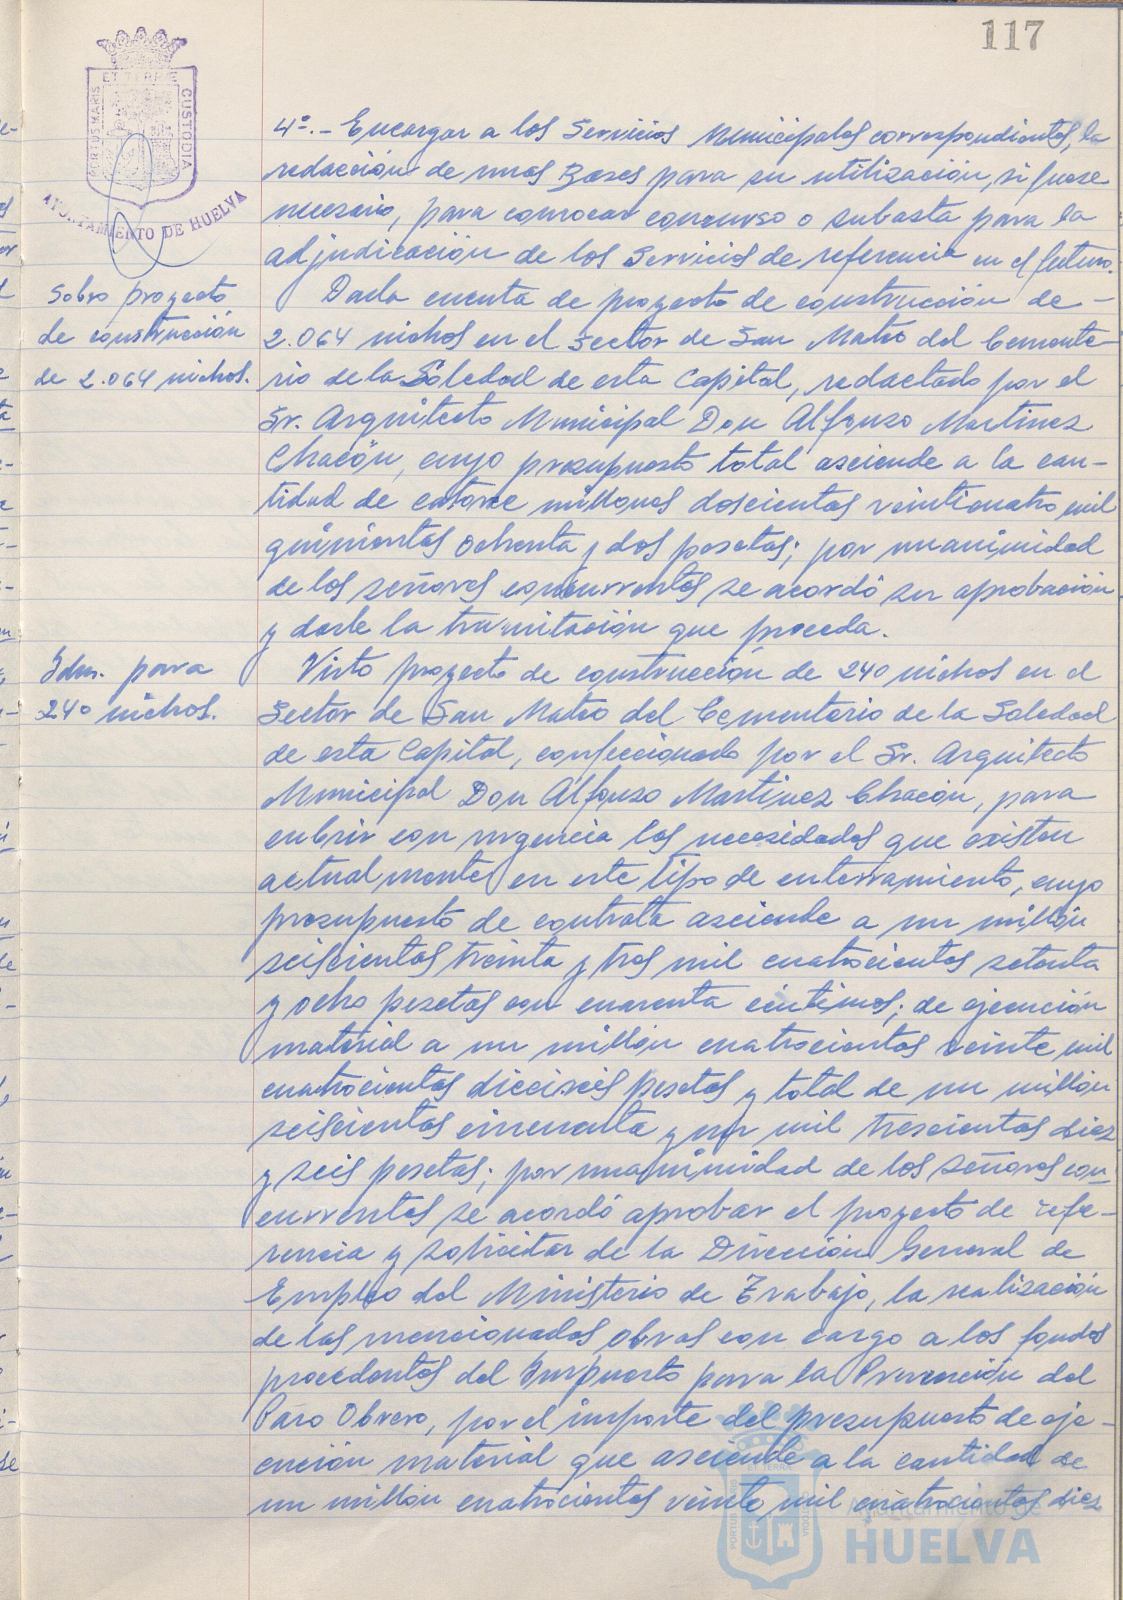 117
PORTUS MARIS
ET TERRÆ
CUSTODIA
AYUNTAMIENTO DE HUELVA
4º.- Encargar a los Servicios Municipales correspondientes, la
redacción de unas Bases para su utilización, si fuese
necesario, para convocar concurso o subasta para la
adjudicación de los Servicios de referencia en el futuro.
Sobre proyecto
de construcción
de 2.064 nichos.
Dada cuenta de proyecto de construcción de -
2.064 nichos en el Sector de San Mateo del Cemente-
rio de la Soledad de esta Capital, redactado por el
Sr. Arquitecto Municipal Don Alfonso Martinez
Chacón, cuyo presupuesto total asciende a la can-
tidad de catorce millones doscientas veinticuatro mil
quinientas ochenta y dos pesetas; por unanimidad
de los señores concurrentes se acordó su aprobación
y darle la tramitación que proceda.
Idm. para
240 nichos.
Visto proyecto de construcción de 240 nichos en el
Sector de San Mateo del Cementerio de la Soledad
de esta Capital, confeccionado por el Sr. Arquitecto
Municipal Don Alfonso Martinez Chacón, para
cubrir con urgencia las necesidades que existen
actualmente en este tipo de enterramiento, cuyo
presupuesto de contrata asciende a un millón
seiscientas treinta y tres mil cuatrocientas setenta
y ocho pesetas con cuarenta céntimos; de ejecución
material a un millón cuatrocientas veinte mil
cuatrocientas dieciseis pesetas y total de un millón
seiscientas cincuenta y un mil trescientas diez
y seis pesetas; por unanimidad de los señores con
currentes se acordó aprobar el proyecto de refe-
rencia y solicitar de la Dirección General de
Empleo del Ministerio de Trabajo, la realización
de las mencionadas obras con cargo a los fondos
procedentes del Impuesto para la Prevención del
Paro Obrero, por el importe del presupuesto de eje-
cución material que asciende a la cantidad de
un millón cuatrocientas veinte mil cuatrocientas diez
Ayuntamiento de
HUELVA